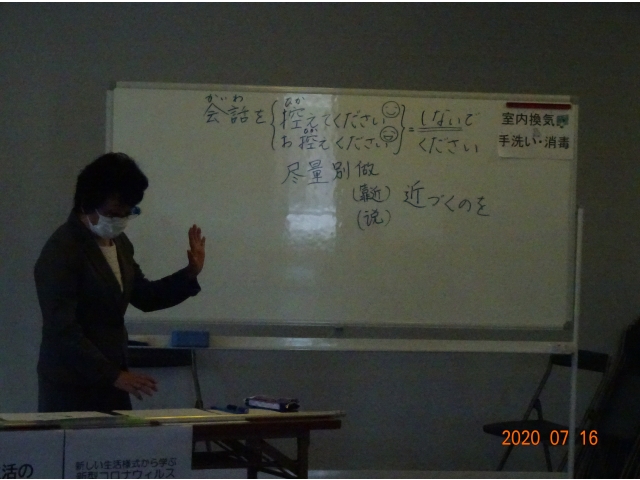 がいわ
会話を
ひか
控えてください
お控えください
=しないで
ください
尽量别做
(靠近)近づくのを
(说)
室内換気
手洗い・消毒
活の
新しい生活様式から学ぶ
新型コロナウィルス
2020 07 16